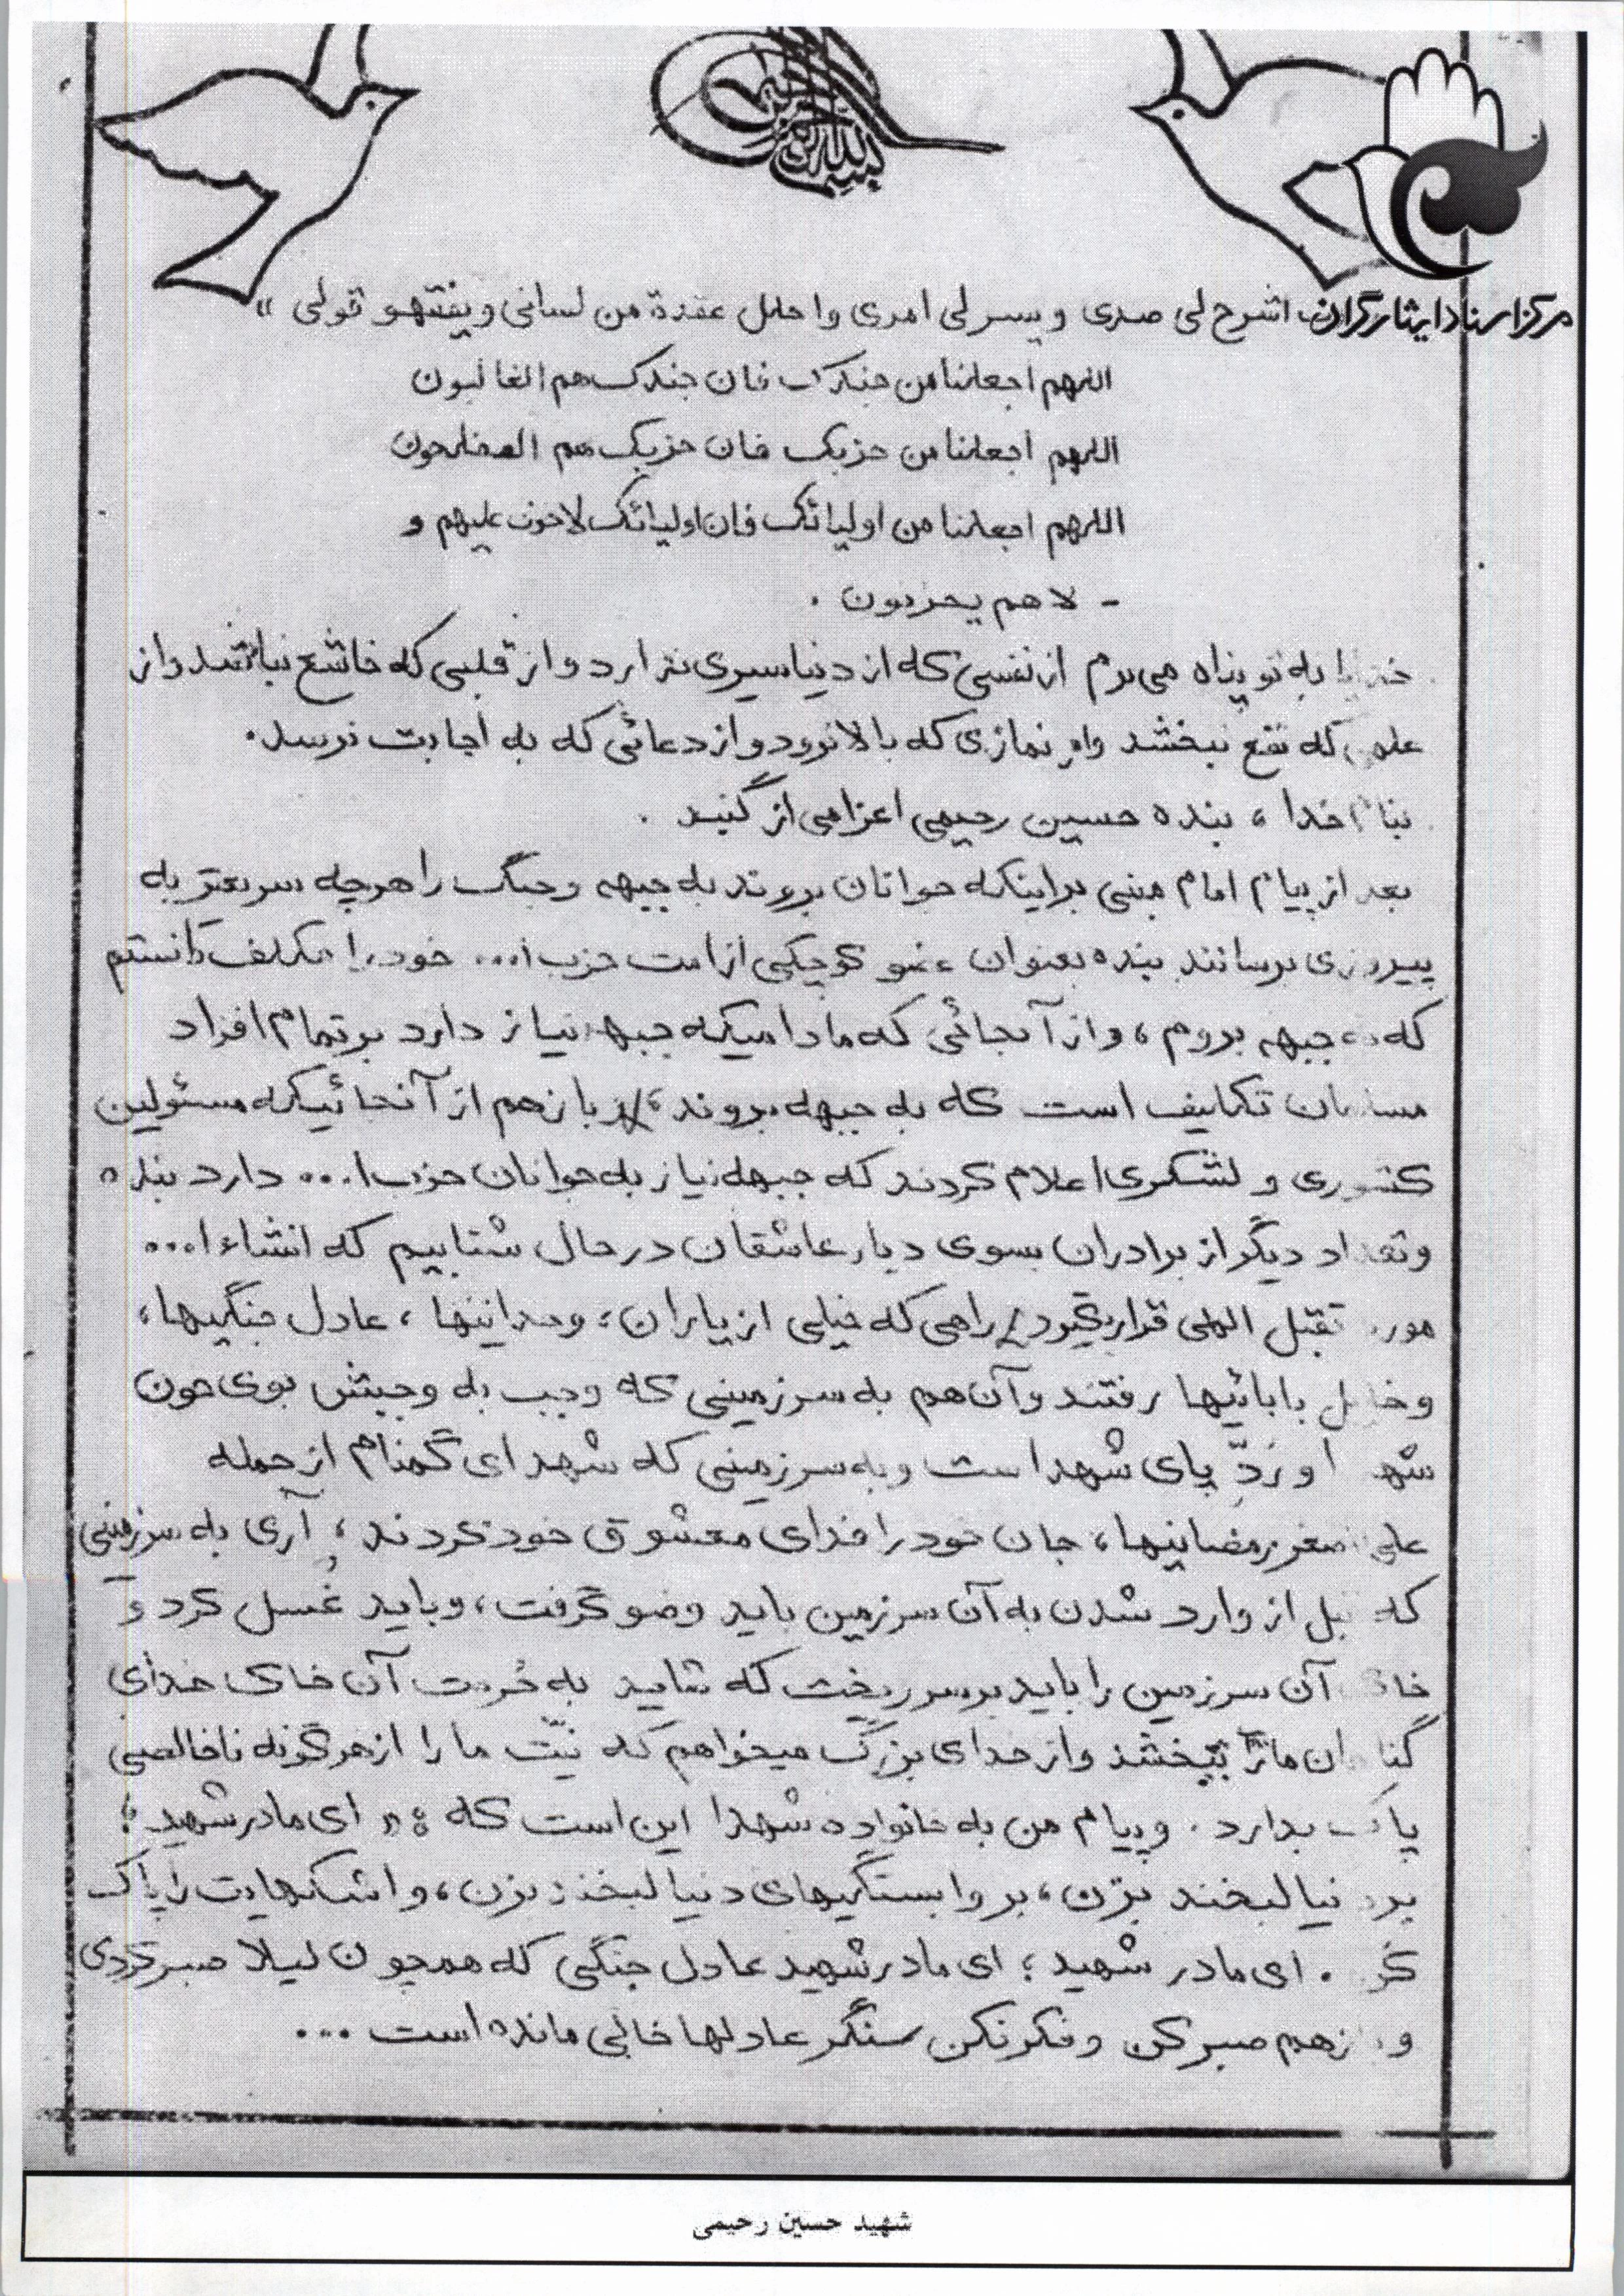 بسم الله الرحمن الرحیم
مرکز اسناد ایثارگران اشرح لی صدری و یسر لی امری و احلل عقدة من لسانی و یفقهو قولی »
اللهم اجعلنا من جندک فان جندک هم الغالبون
اللهم اجعلنا من حزبک فان حزبک هم المفلحون
اللهم اجعلنا من اولیائک فان اولیائک لاخوف علیهم و
- لا هم یحزنون .
خدایا به تو پناه می برم از نفسی که از دنیا سیری ندارد و از قلبی که خاشع نباشد و از
علمی که نفع نبخشد واز نمازی که بالا نرود و از دعائی که به اجابت نرسد.
بنام خدا ، بنده حسین رحیمی اعزامی از گنبد .
بعد از پیام امام مبنی براینکه جوانان بروند به جبهه و جنگ را هرچه سریعتر به
پیروزی برسانند بنده بعنوان عضو کوچکی از امت حزب ا... خود را مکلف دانستم
که به جبهه بروم ، و از آنجائی که مادامیکه جبهه نیاز دارد بر تمام افراد
مسلمان تکلیف است که به جبهه بروند ، باز هم از آنجائیکه مسئولین
کشوری و لشکری اعلام کردند که جبهه نیاز به جوانان حزب ا... دارد بنده
و تعداد دیگر از برادران بسوی دیار عاشقان در حال شتابیم که انشاء ا...
مورد تقبل الهی قرار بگیرد / راهی که خیلی از یاران ، وحدانیتها ، عادل جنگیها ،
و خلیل بابائیها رفتند و آن هم به سرزمینی که وجب به وجبش بوی خون
شهدا و ردّ پای شهدا ست و به سرزمینی که شهدای گمنام از جمله
علی اصغر رمضانیها ، جان خود را فدای معشوق خود کردند ، آری به سرزمینی
که قبل از وارد شدن به آن سرزمین باید وضو گرفت ، و باید غسل کرد و
خاک آن سرزمین را باید بر سر ریخت که شاید به حُرمت آن خاک خدای
گناهان ما را ببخشد و از خدای بزرگ میخواهم که نیّت ما را از هرگونه ناخالصی
پاک بدارد . و پیام من به خانواده شهدا این است که : « ای مادر شهید ؛
بر دنیا لبخند بزن ، بر وابستگیهای دنیا لبخند بزن ، و اشکهایت را پاک
کن . ای مادر شهید ؛ ای مادر شهید عادل جنگی که همچون لیلا صبر کردی
و باز هم صبر کن و فکر نکن سنگر عادلها خالی مانده است ...
شهید حسین رحیمی